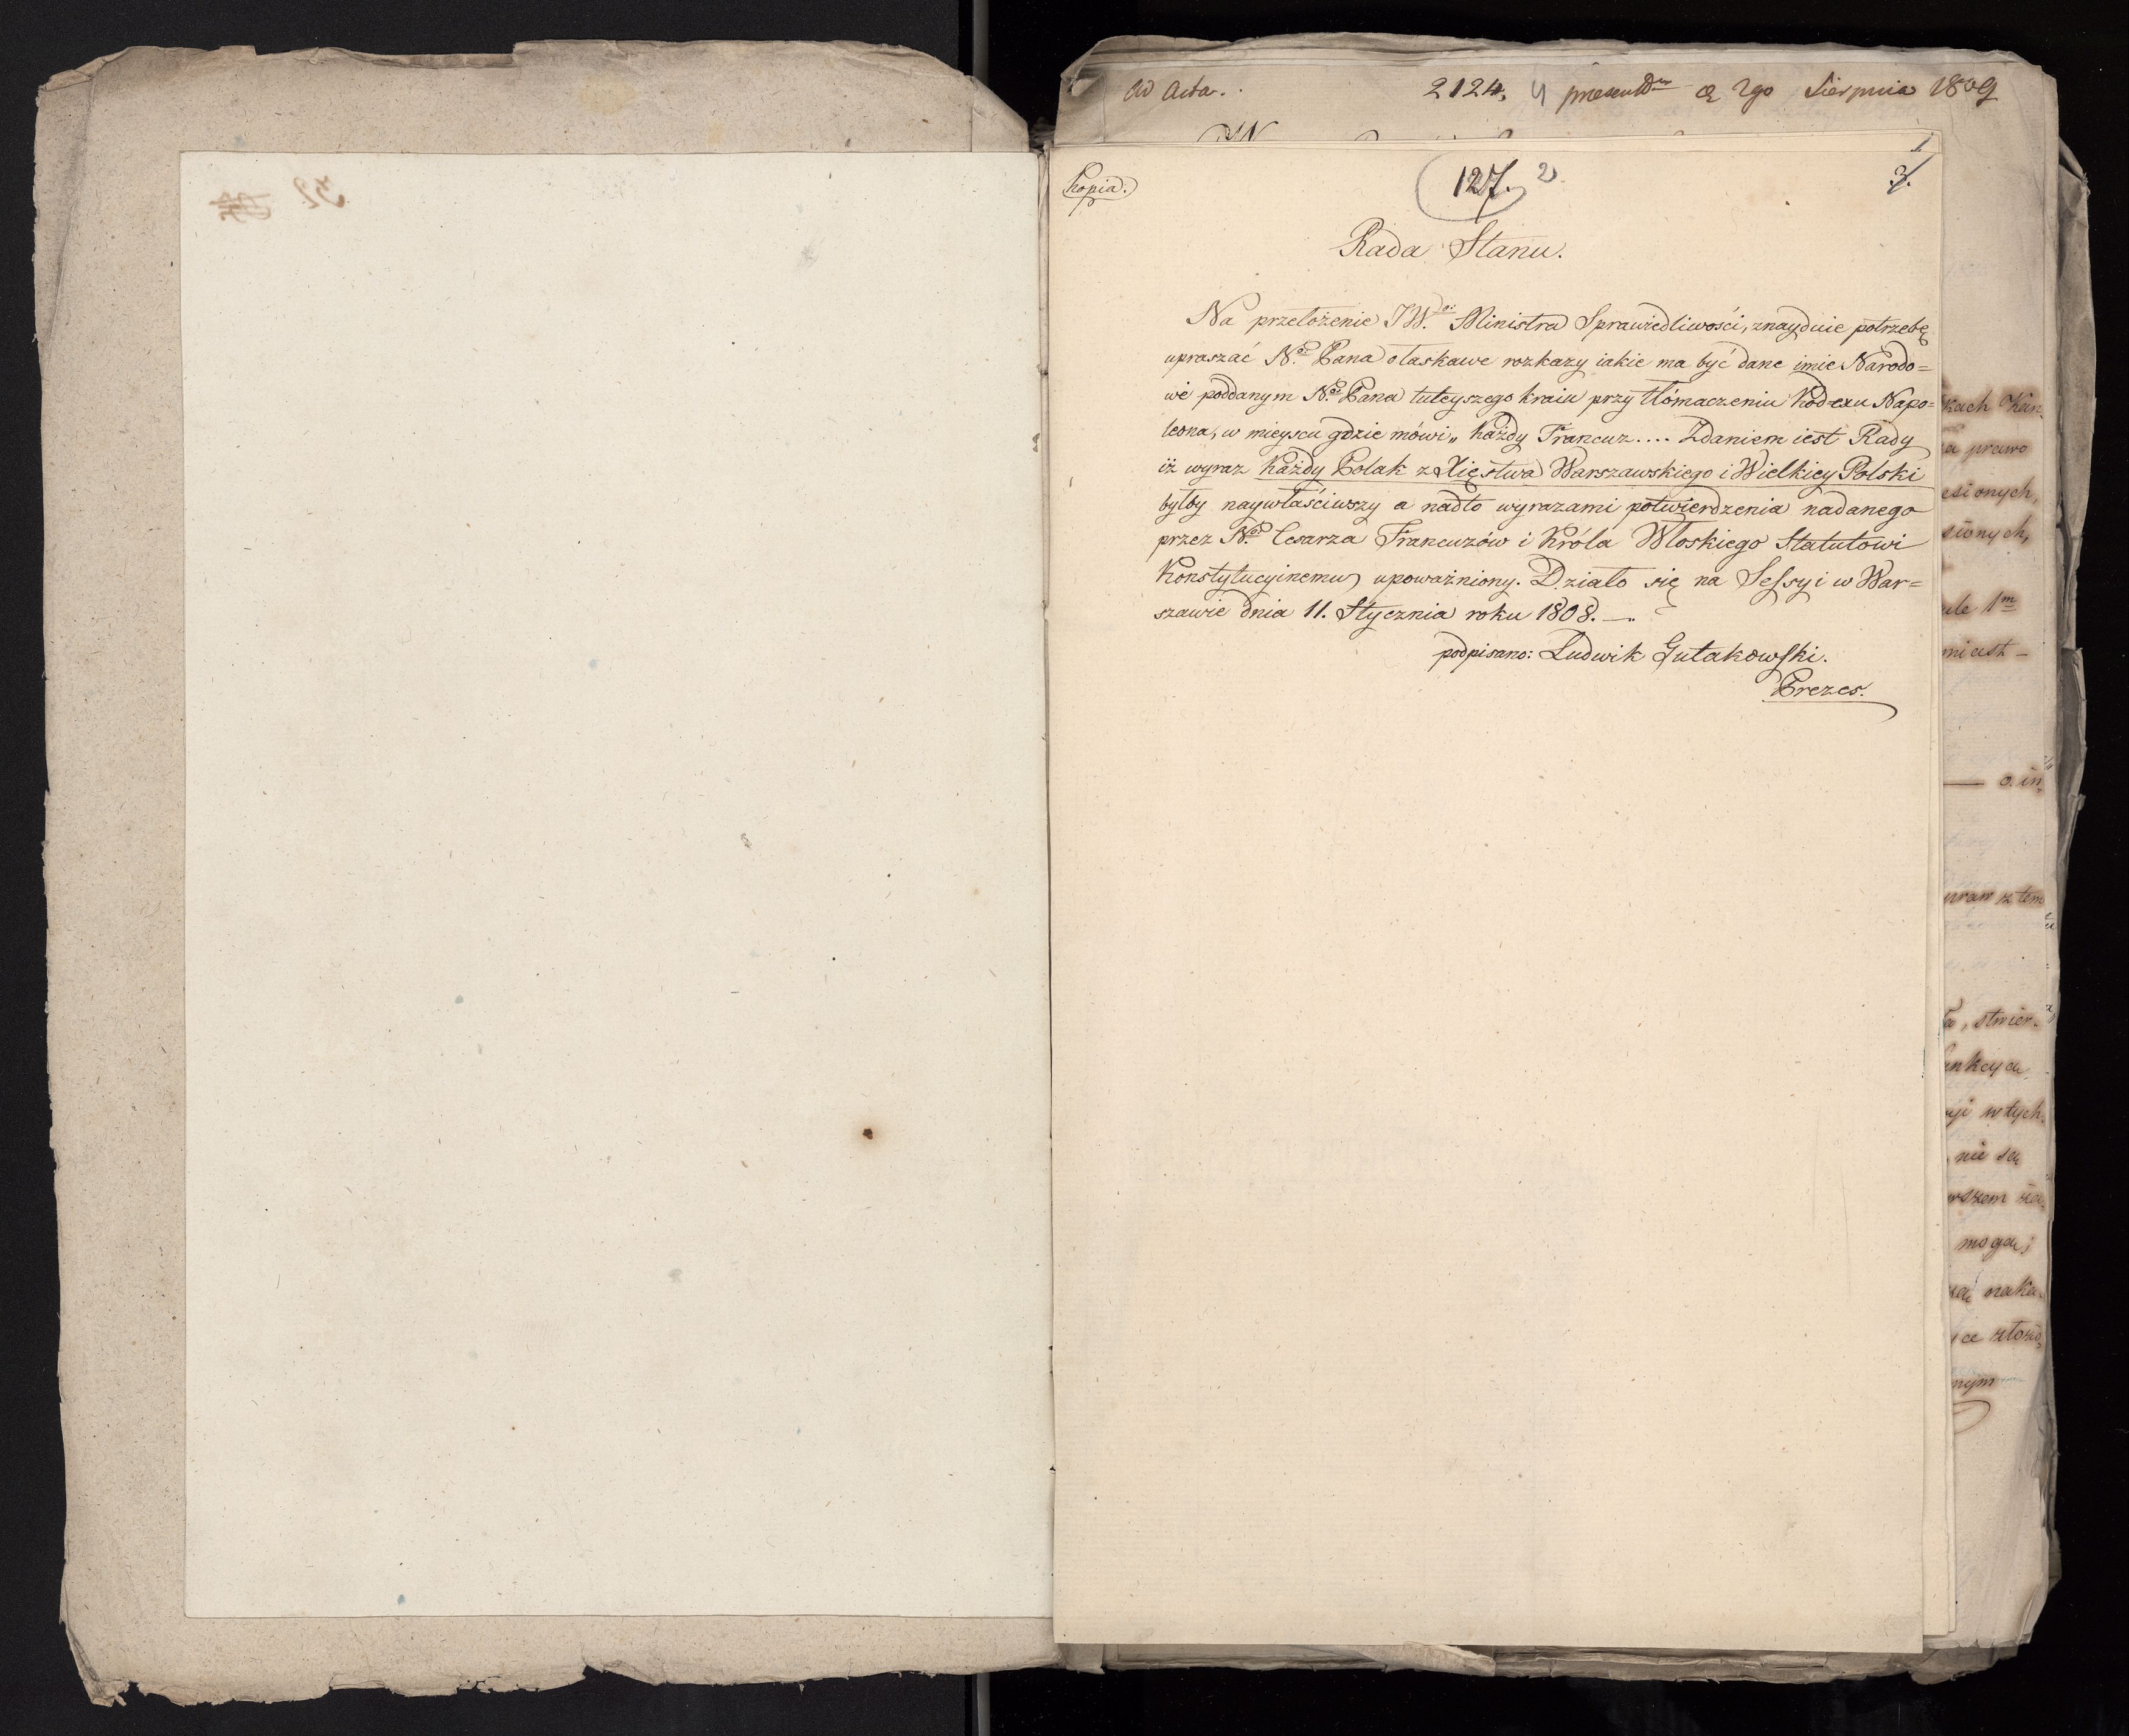 ad acta.
2124, presentm d 2go Sierpnia 1809
Kopia.
127. 2
1
3.
Rada Stanu.
Na przełożenie JW.go Ministra Sprawiedliwości, znayduie potrzebę
upraszać N.go Pana o łaskawe rozkazy iakie ma być dane imie Narodo=
we poddanym N.go Pana tuteyszego kraiu przy tłómaczeniu Kodexu Napo=
leona, w mieyscu gdzie mówi „ każdy Francuz.... Zdaniem iest Rady
iż wyraz każdy Polak z Xięstwa Warszawskiego i Wielkiey Polski
byłby naywłaściwszy a nadto wyrazami potwierdzenia nadanego
przez N.go Cesarza Francuzów i Króla Włoskiego Statutowi
Konstytucyinemu upoważniony. Działo się na Sessyi w War=
szawie dnia 11. Stycznia roku 1808. —
podpisano: Ludwik Gutakowski.
Prezes.
32
kach Kan
a prawo
esionych,
sionych,
ule 1m
miast —
o. in
praw z tem
, stwier.
unkcya
w tych
nie są
mogą;
naka
nym